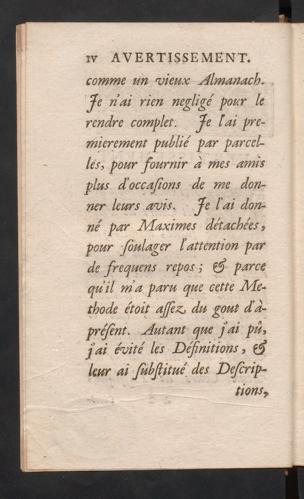 IV AVERTISSEMENT.
comme un vieux Almanach.
Je n'ai rien negligé pour le
rendre complet. Je l'ai pre-
mierement publié par parcel-
les, pour fournir à mes amis
plus d'occaſions de me don-
ner leurs avis. Je l'ai don-
né par Maximes détachées,
pour ſoulager l'attention par
de frequens repos; & parce
qu'il m'a paru que cette Me-
thode étoit aſſez du gout d'à-
préſent. Autant que j'ai pû,
j'ai évité les Définitions, &
leur ai ſubſtitué des Deſcrip-
tions,